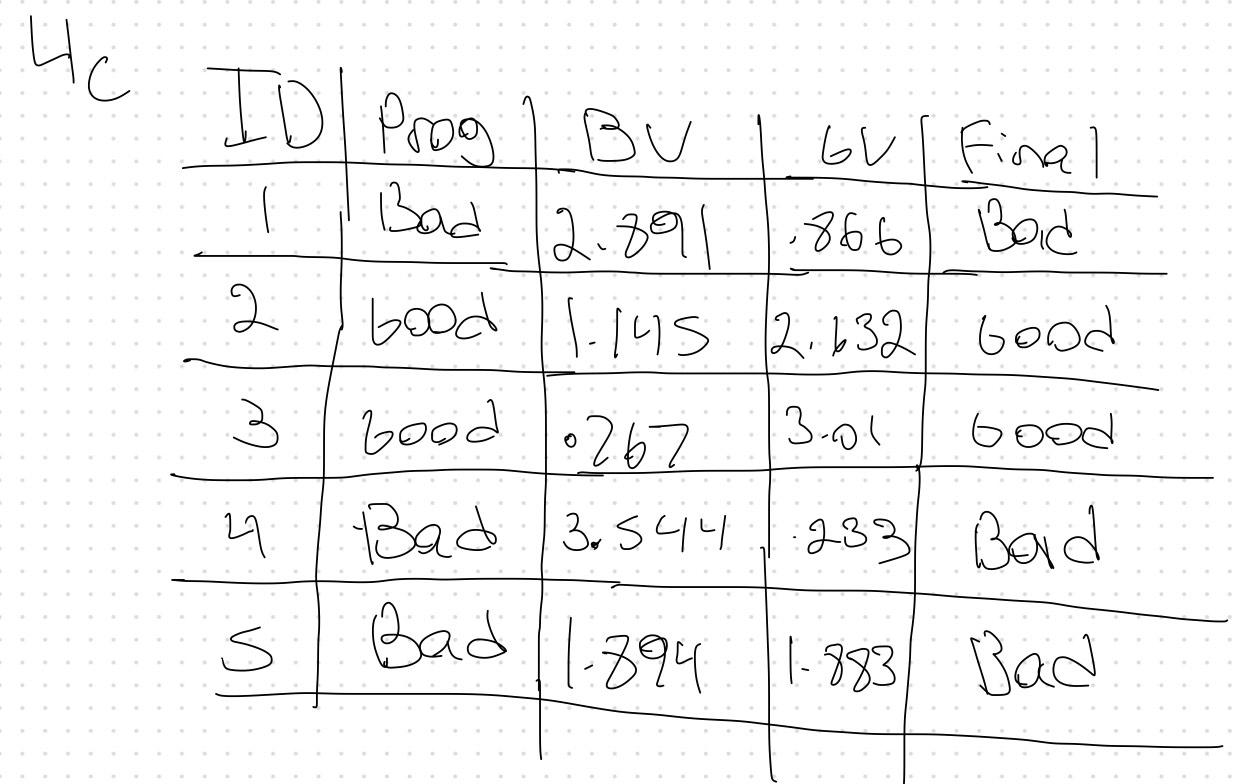 4c
ID Prog BV GV Final
1 Bad 2.891 .866 Bad
2 Good 1.145 2.632 Good
3 Good .267 3.01 Good
4 Bad 3.544 .233 Bad
5 Bad 1.894 1.883 Bad